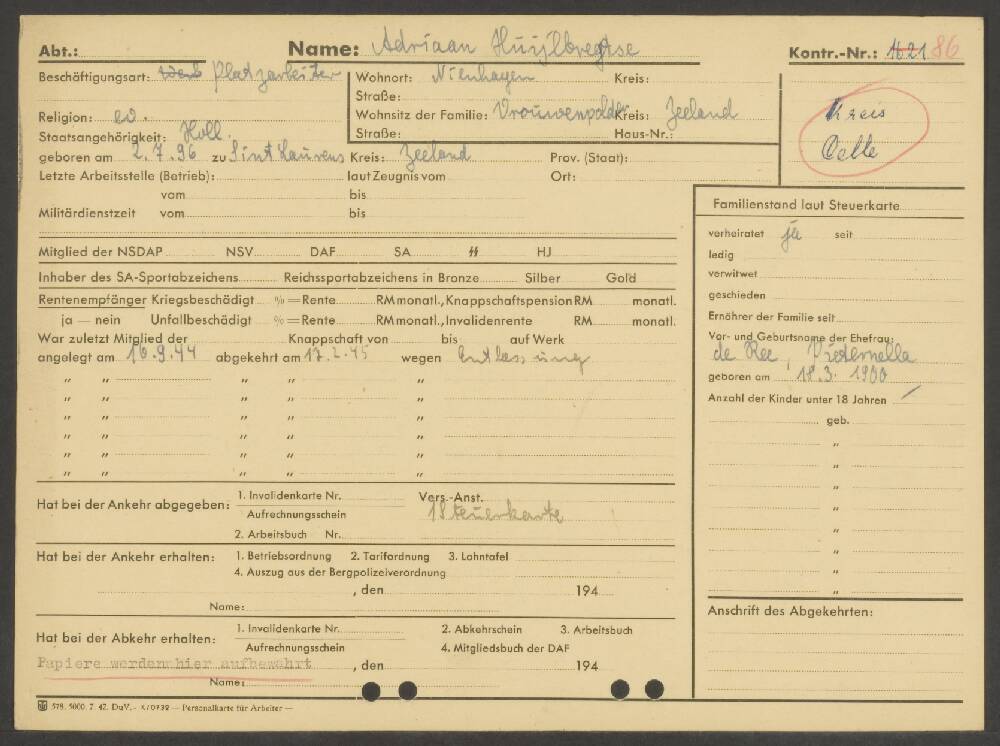 Abt.: Name: Adriaan Huijlbregtse Kontr.-Nr.: 1621 86
Beschäftigungsart: Platzarbeiter
Wohnort: Nienhagen Kreis:
Straße:
Wohnsitz der Familie: Vrouwenpolder Kreis: Zeeland
Straße: Haus-Nr.:
Kreis
Celle
Religion: ev.
Staatsangehörigkeit: Holl.
geboren am 2.7.96 zu Sint Laurens Kreis: Zeeland Prov. (Staat):
Letzte Arbeitsstelle (Betrieb): laut Zeugnis vom Ort:
vom bis
Militärdienstzeit vom bis
Mitglied der NSDAP NSV DAF SA SS HJ
Inhaber des SA-Sportabzeichens Reichssportabzeichens in Bronze Silber Gold
Rentenempfänger Kriegsbeschädigt % = Rente RM monatl., Knappschaftspension RM monatl.
ja — nein Unfallbeschädigt % = Rente RM monatl., Invalidenrente RM monatl.
War zuletzt Mitglied der Knappschaft von bis auf Werk
angelegt am 16.9.44 abgekehrt am 17.2.45 wegen Entlassung
" " " " "
" " " " "
" " " " "
" " " " "
" " " " "
" " " " "
Hat bei der Ankehr abgegeben: 1. Invalidenkarte Nr. Vers.-Anst.
Aufrechnungsschein 1 Steuerkarte
2. Arbeitsbuch Nr.
Hat bei der Ankehr erhalten: 1. Betriebsordnung 2. Tarifordnung 3. Lohntafel
4. Auszug aus der Bergpolizeiverordnung
, den 194
Name:
Hat bei der Abkehr erhalten: 1. Invalidenkarte Nr. 2. Abkehrschein 3. Arbeitsbuch
Aufrechnungsschein 4. Mitgliedsbuch der DAF
Papiere werden hier aufbewahrt , den 194
Name:
Familienstand laut Steuerkarte
verheiratet ja seit
ledig
verwitwet
geschieden
Ernährer der Familie seit
Vor- und Geburtsname der Ehefrau:
de Ree, Pieternella
geboren am 18.3.1900
Anzahl der Kinder unter 18 Jahren /
geb.
"
"
"
"
"
"
"
Anschrift des Abgekehrten:
578. 5000. 7. 42. DuV. - K/0932 — Personalkarte für Arbeiter —